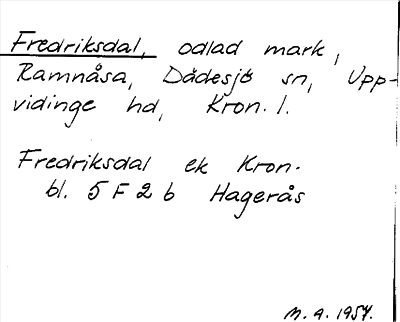 Fredriksdal, odlad mark,
Ramnåsa, Dädesjö sn, Upp-
vidinge hd, Kron. l.
Fredriksdal ek Kron.
bl. 5 F 2 b Hagerås
M. A. 1954.